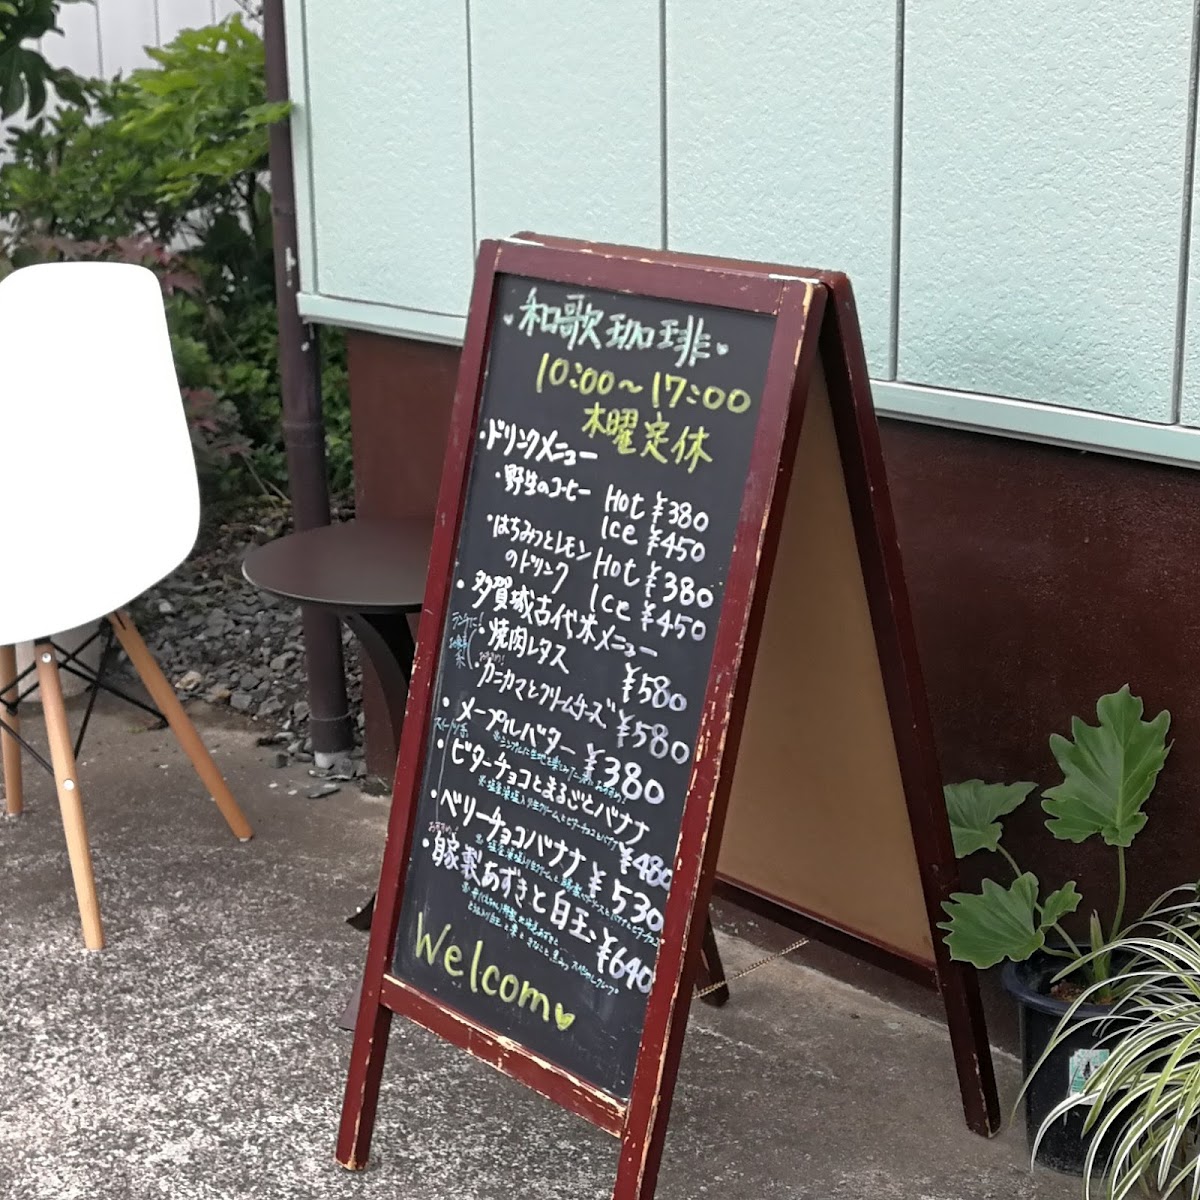 和歌珈琲
10:00〜17:00
木曜定休
・ドリンクメニュー
・野生のコーヒー Hot ¥380
Ice ¥450
・はちみつとレモンのドリンク Hot ¥380
Ice ¥450
・多賀城古代米メニュー
・焼肉レタス ¥580
おすすめ!
・カニカマとクリームチーズ ¥580
・メープルバター ¥380
・ビターチョコとまるごとバナナ ¥480
・ベリーチョコバナナ ¥530
おすすめ!
・自家製あずきと白玉 ¥640
Welcom